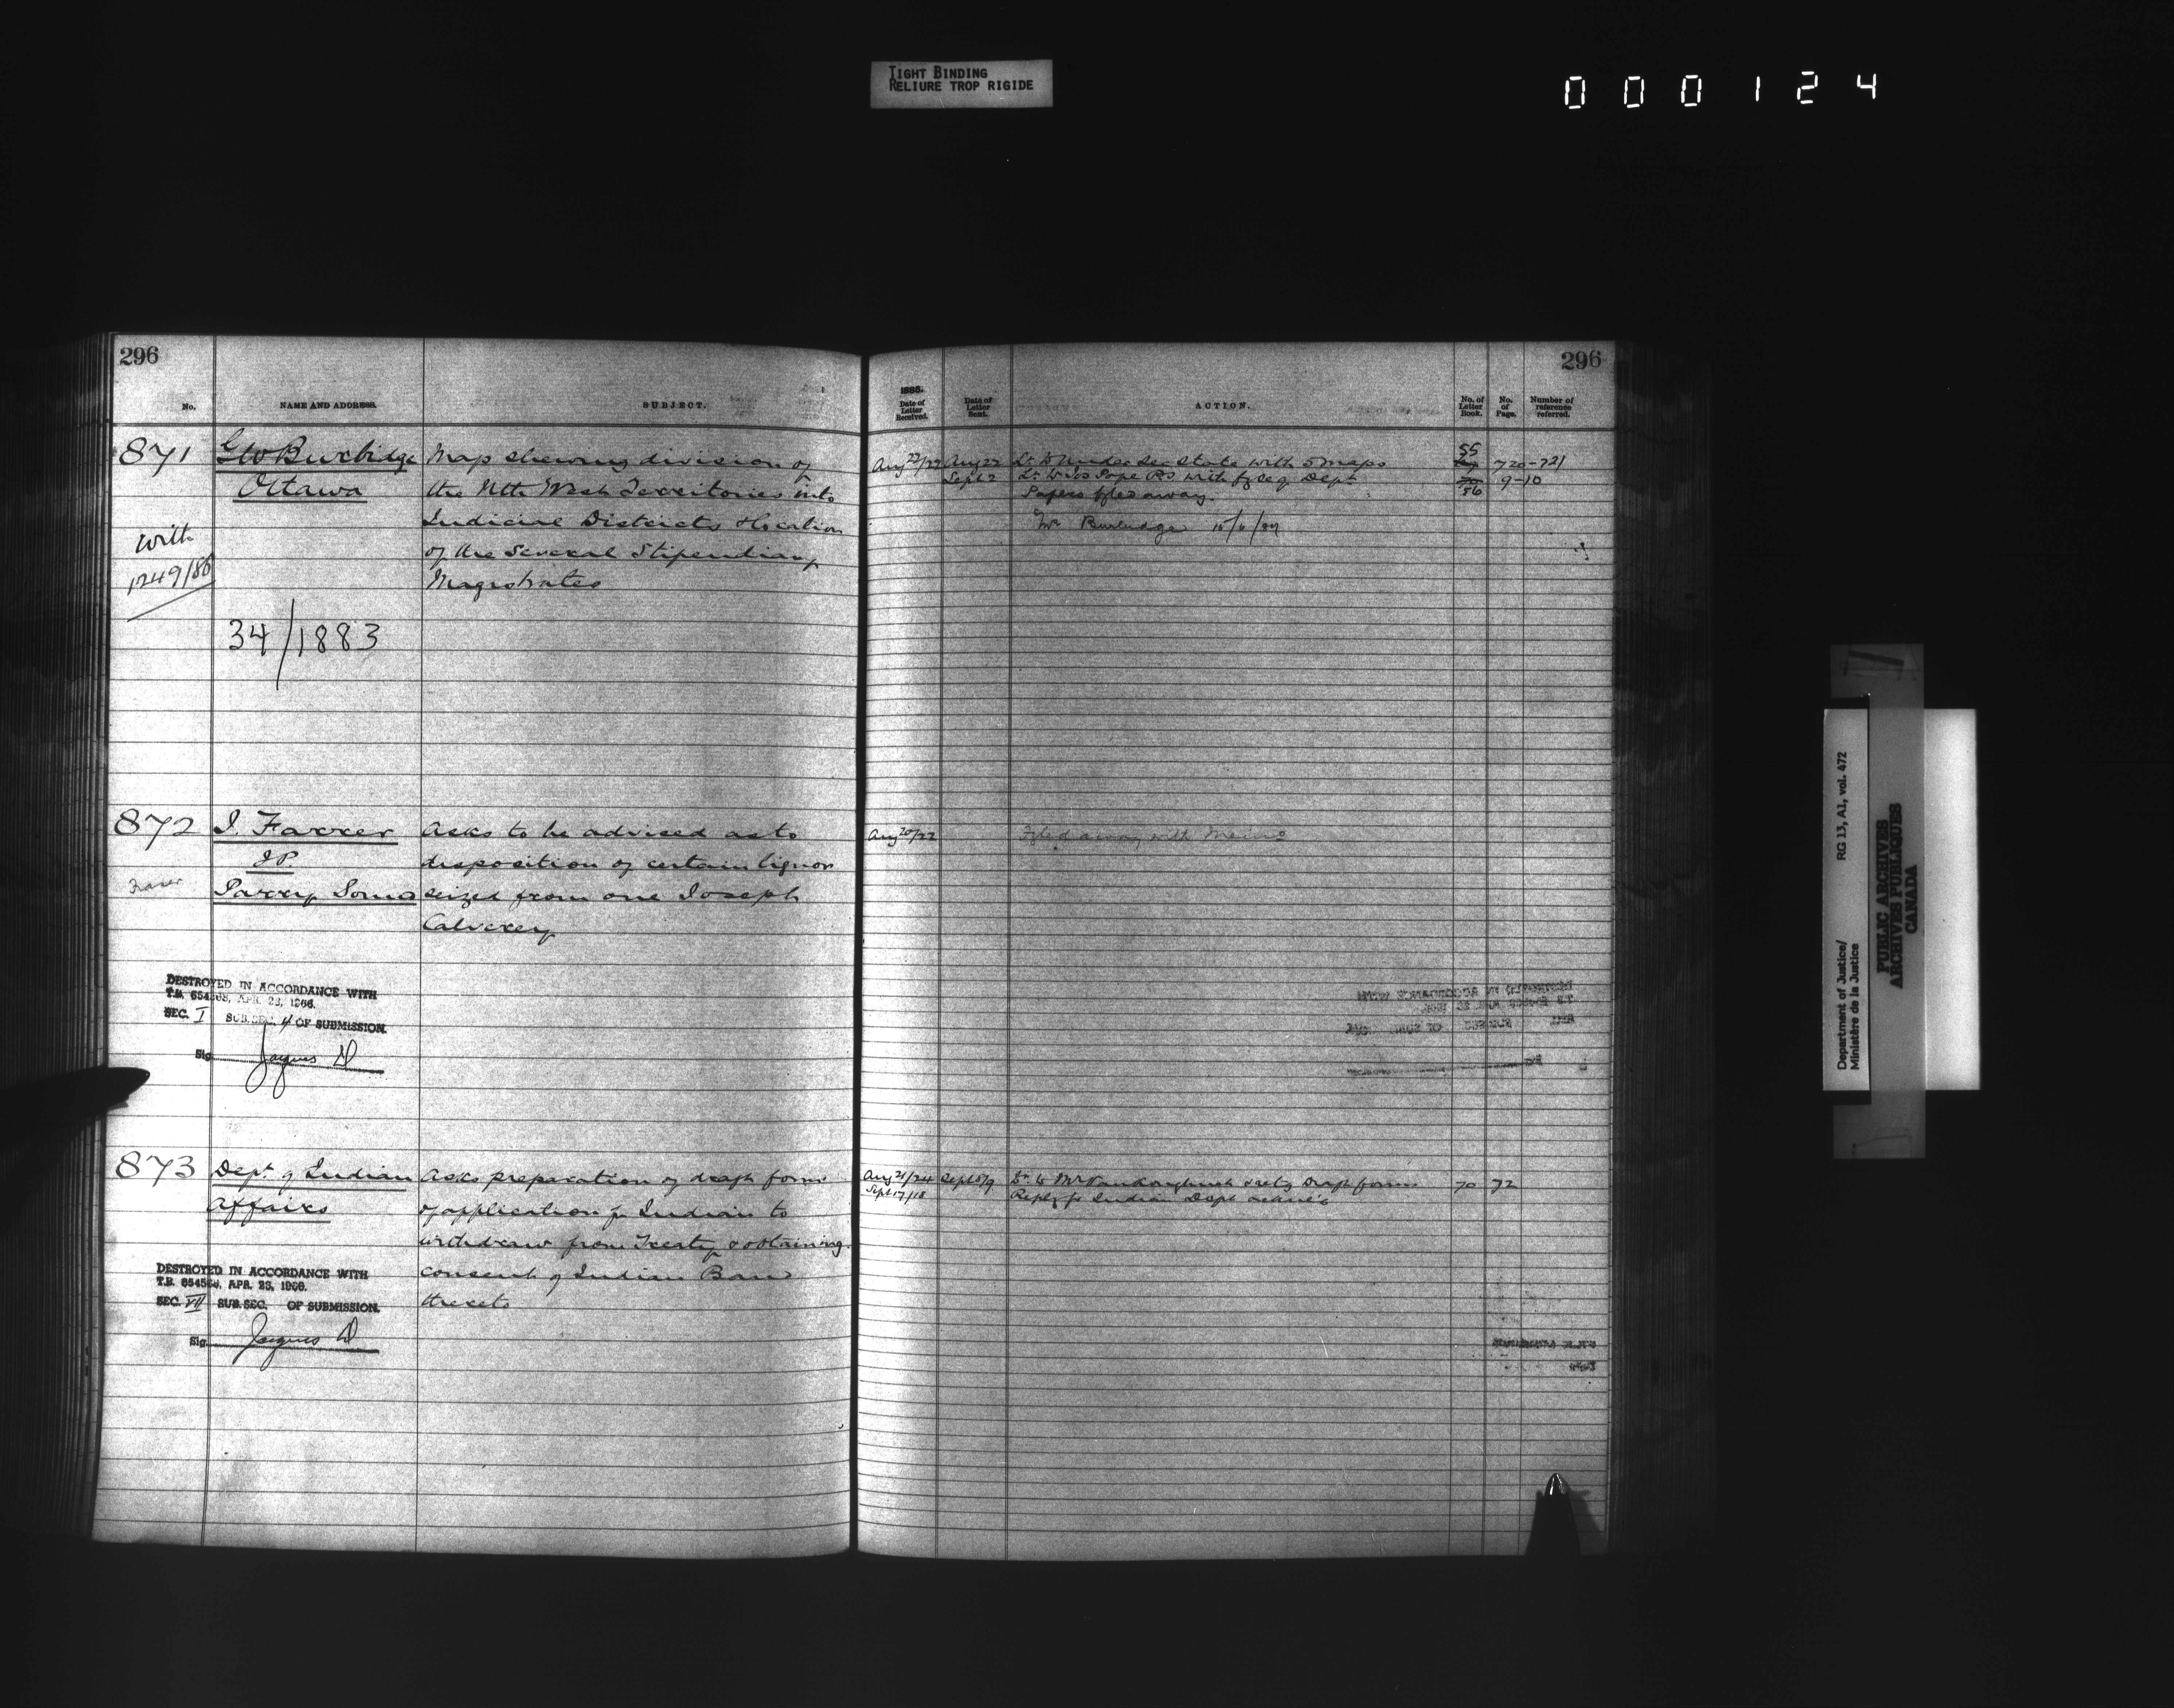 TIGHT BINDING
RELIURE TROP RIGIDE
000124
296
No.
NAME AND ADDRESS.
SUBJECT.
871
GW Burbidge
Ottawa
With
1249/86
34/1883
Map shewing division of
the Nth West Territories into
Judicial Districts & location
of the several Stipendiary
Magistrates
872
J. Farrer
JP.
Parry Sound
Fraser
Asks to be advised as to
disposition of certain liquor
seized from one Joseph
Calverey
DESTROYED IN ACCORDANCE WITH
T.B. 654568, APR. 23, 1966.
SEC. I SUB.SEC. 4 OF SUBMISSION.
Sig. Jacques D
873
Dept. of Indian
Affairs
Asks preparation of draft forms
of application for Indian to
withdraw from Treaty & obtaining
consent of Indian Band
thereto
DESTROYED IN ACCORDANCE WITH
T.B. 654568, APR. 23, 1966.
SEC. VII SUB.SEC. OF SUBMISSION.
Sig. Jacques D
296
1885.
Date of Letter Received.
Date of Letter Sent.
ACTION.
No. of Letter Book.
No. of Page.
Number of reference referred.
Aug 22/22 Aug 22 Lr. to Under Sec State with 5 maps 55 720-721
Sept 2 Lr. to Jos Pope PS with Dept 56 9-10
Papers fyled away.
Mr Burbidge
Aug 20/22 Fyled away with Memo
Aug 21/24 Sept 8/9 Lr. to Mr Vankoughnet retg draft forms 70 72
Sept 17/18 Reply fr Indian Dept
Department of Justice/
Ministère de la Justice
RG 13, A1, vol. 472
PUBLIC ARCHIVES
ARCHIVES PUBLIQUES
CANADA